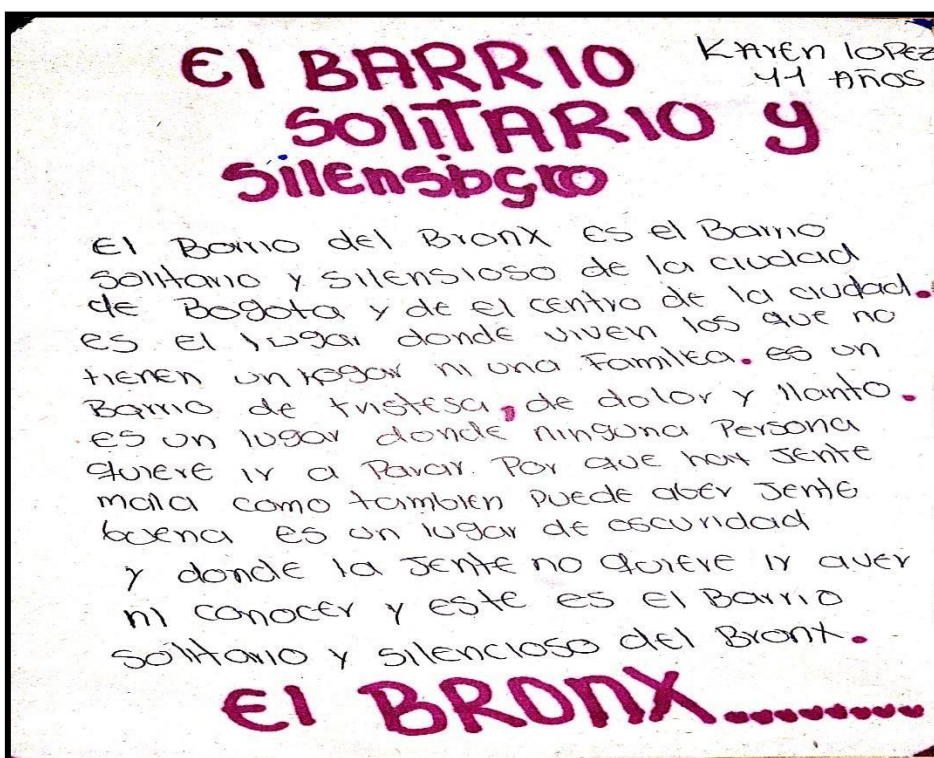 El BARRIO
KAREN lOPEZ
11 AÑOS
SOlITARIO y
El Barrio del Bronx es el Barrio
Solitario y silensioso de la ciudad
de Bogota y de el centro de la ciudad.
es el lugar donde viven los que no
tienen un hogar ni una Familia. es un
Barrio de tristesa, de dolor y llanto.
es un lugar donde ninguna Persona
quiere ir a Parar. Por que hay Jente
mala como tambien puede aber Jente
buena es un lugar de oscuridad
y donde la Jente no quiere ir aver
ni conocer y este es el Barrio
solitario y silencioso del Bronx.
El BRONX.........